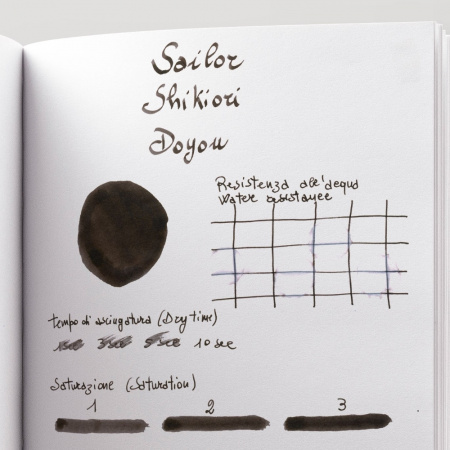 Sailor
Shikiori
Doyou
Resistenza all'acqua
Water resistance
tempo di asciugatura (Dry time)
1sec 3sec 5sec 10 sec
Saturazione (Saturation)
1 2 3